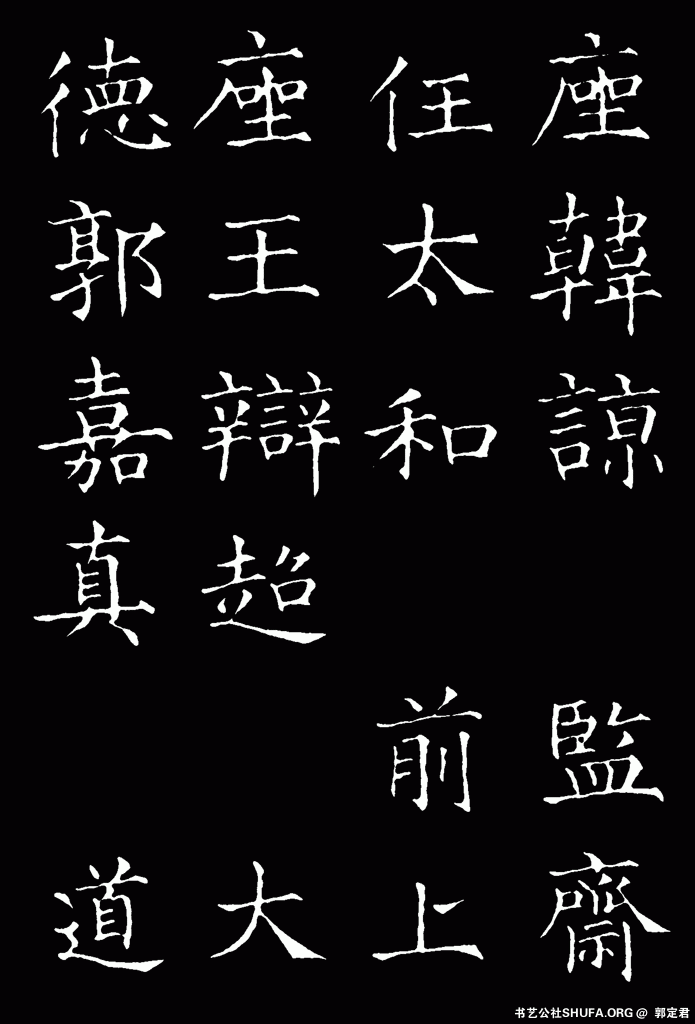 座韓諒 監齋
任太和 前上
座王辯超 大
德郭嘉真 道
书艺公社SHUFA.ORG @ 郭定君